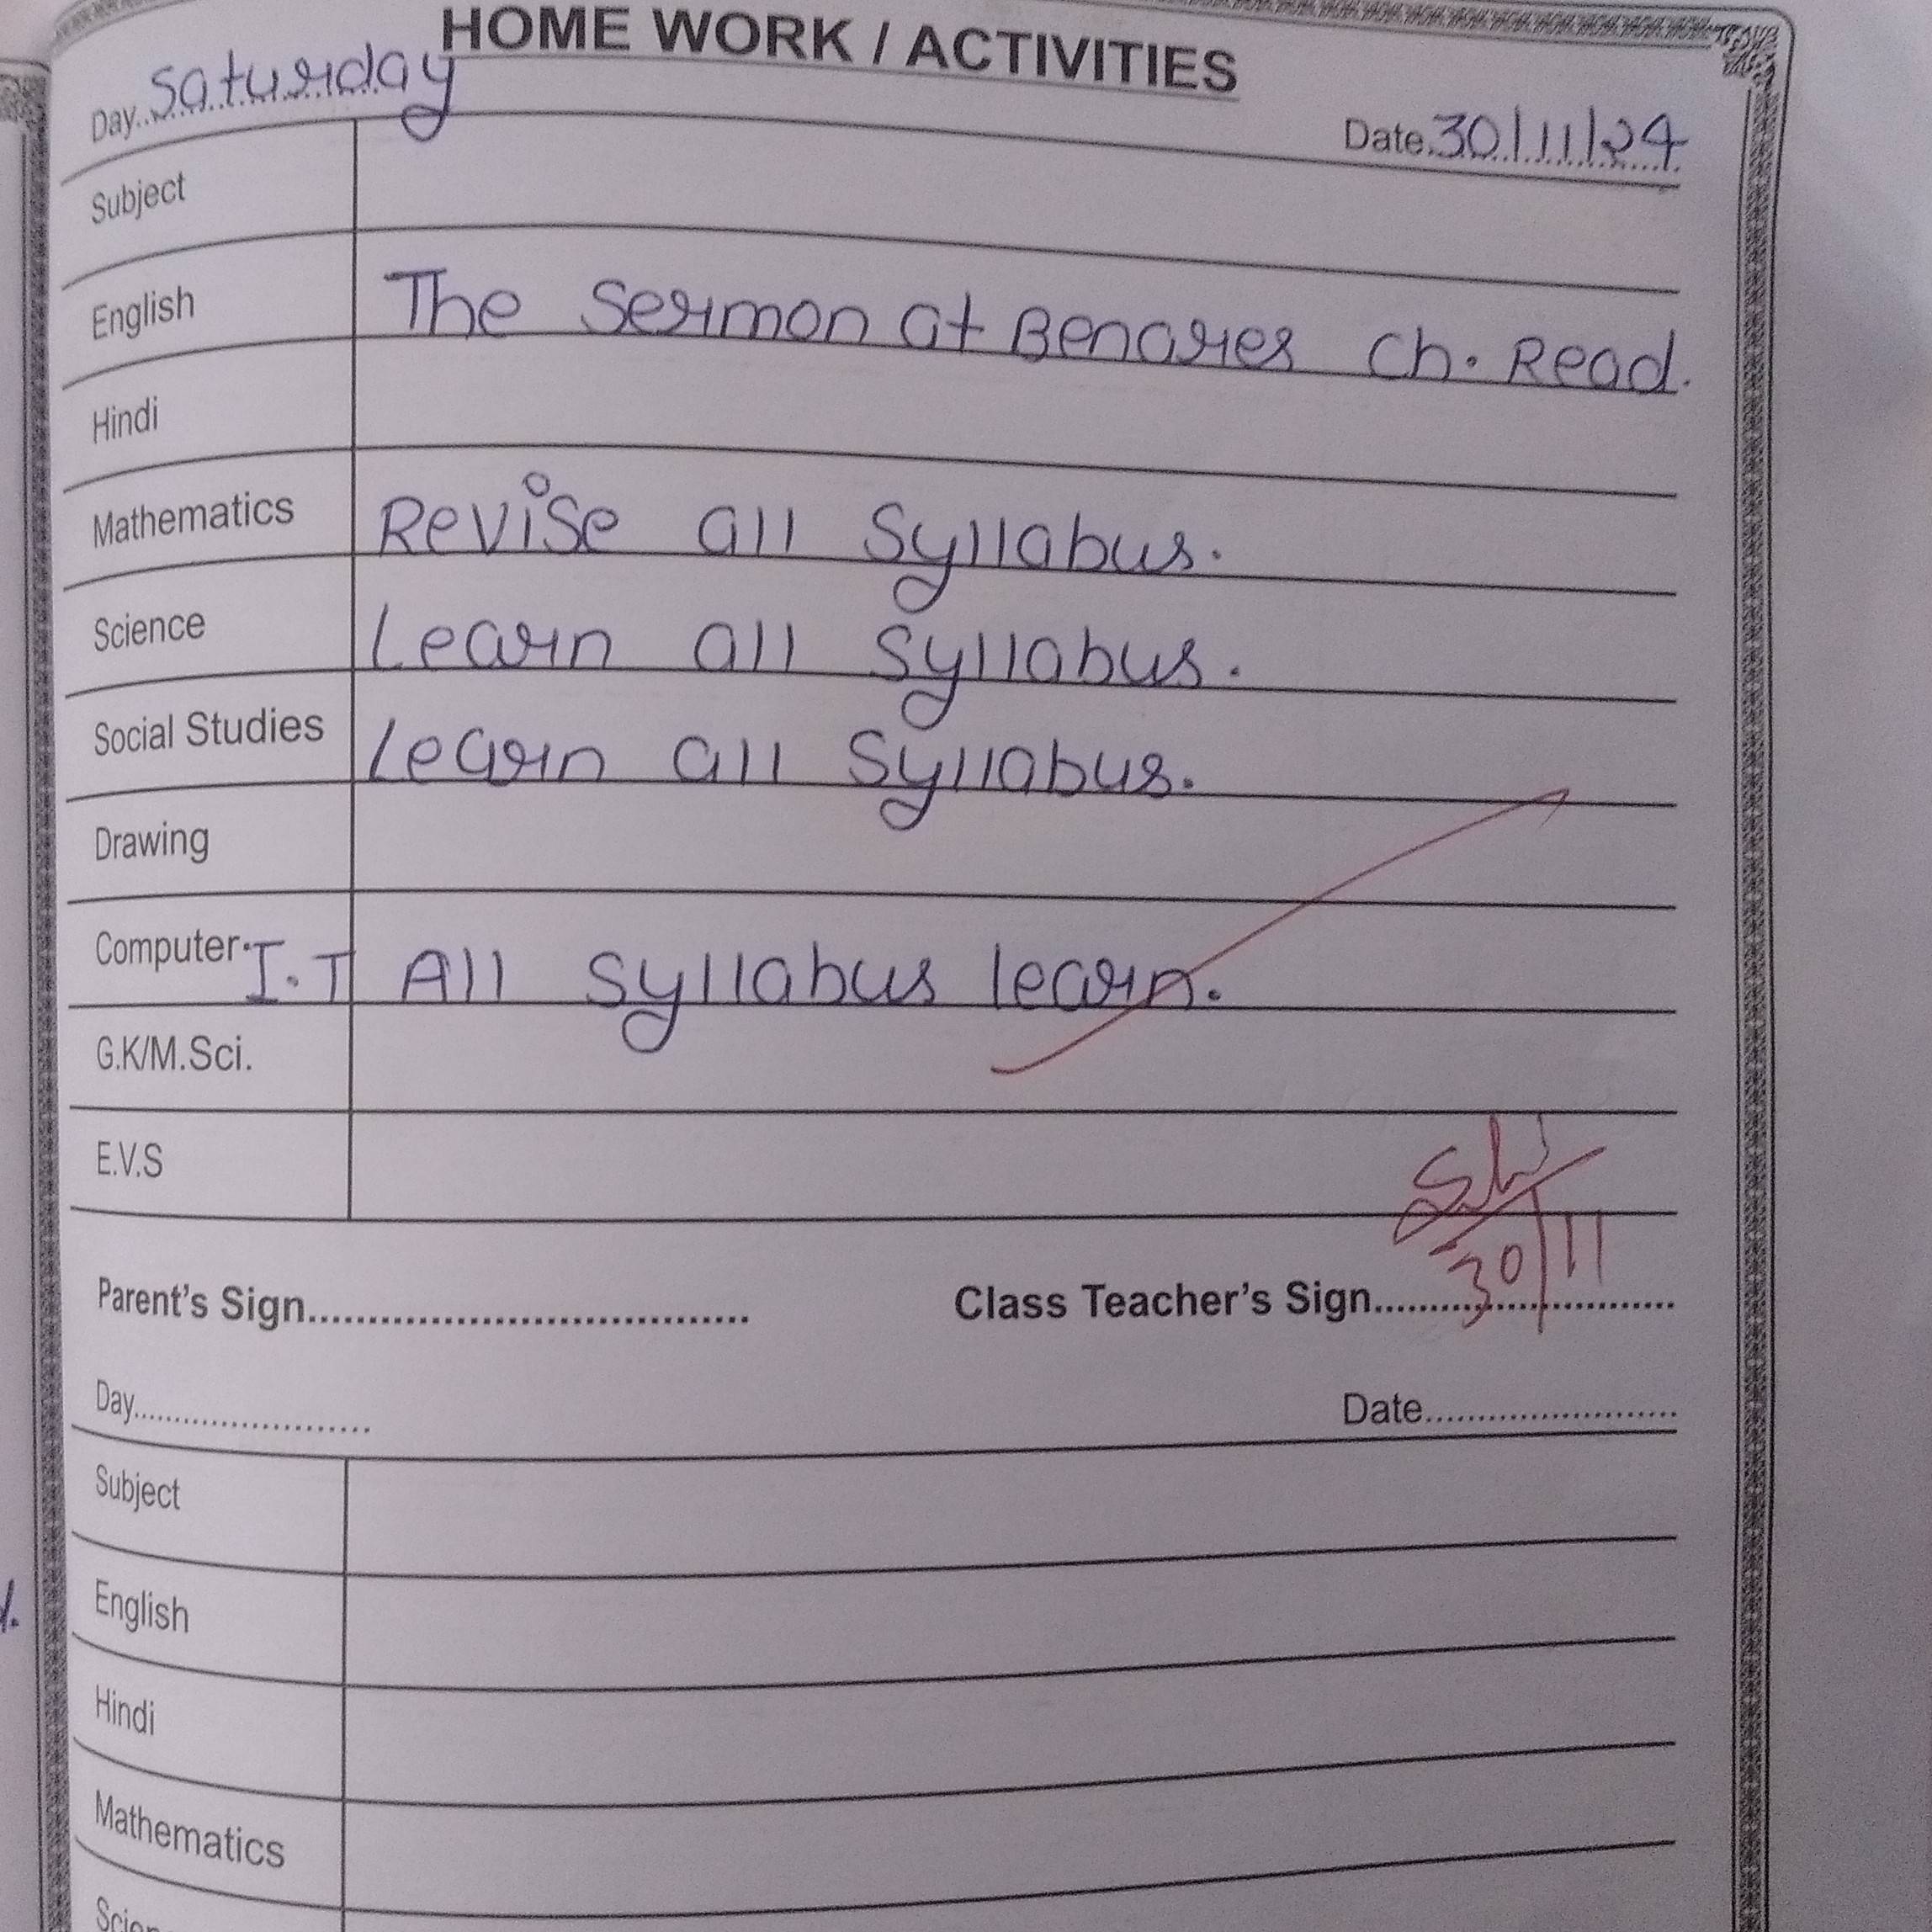 HOME WORK / ACTIVITIES
Day..Saturday
Date.30/11/24
Subject
English The Sermon at Benares Ch. Read.
Hindi
Mathematics Revise all Syllabus.
Science Learn all Syllabus.
Social Studies Learn all Syllabus.
Drawing
Computer. I.T All Syllabus learn.
G.K/M.Sci.
E.V.S
30/11
Parent's Sign.................................... Class Teacher's Sign............................
Day........................ Date........................
Subject
English
Hindi
Mathematics